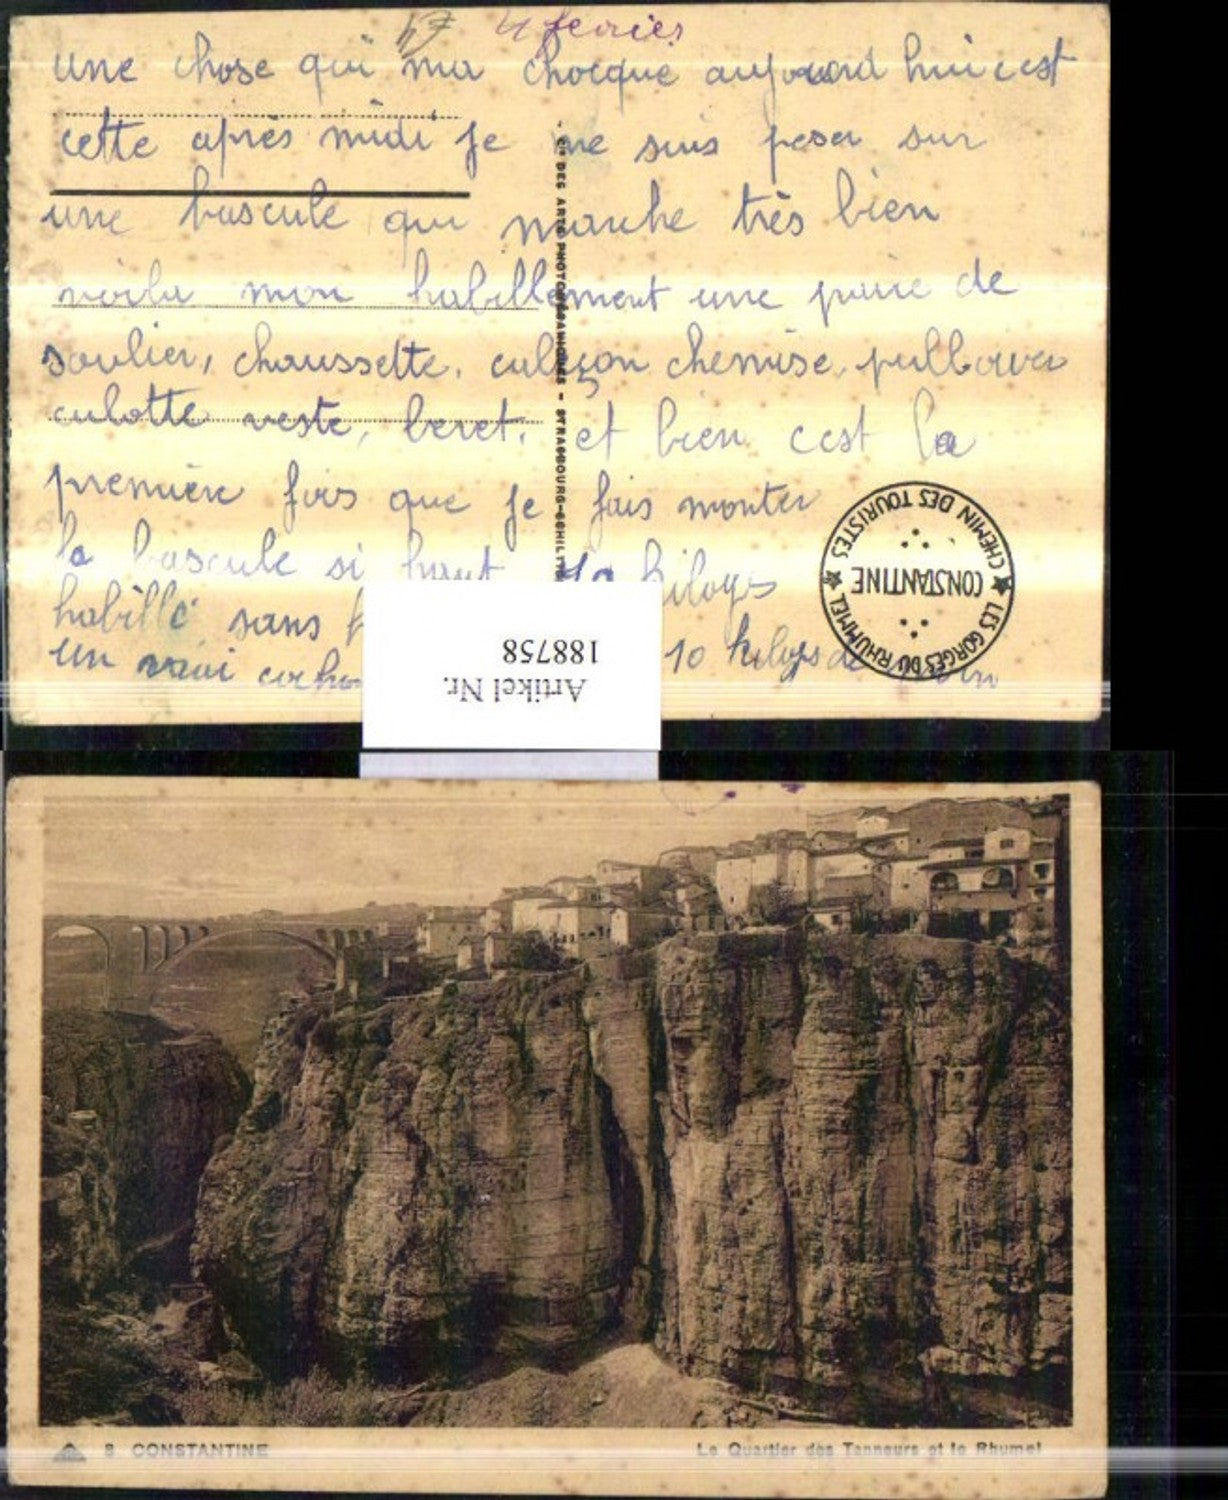 4 fevrier
une chose qui ma chocque aujourd hui c est
cette après midi je me suis peser sur
une bascule qui marche très bien
voila mon habillement une paire de
soulier, chaussette, caleçon chemise, pullover
culotte veste, beret, et bien cest la
première fois que je fais monter
la bascule si haut kilogs
habillé sans
un vrai 10 kilogs de
Cie DES ARTS PHOTOMÉCANIQUES - STRASBOURG-SCHILTI
CHEMIN DES TOURISTES ★ LES GORGES DU RHUMMEL ★
CONSTANTINE
Artikel Nr.
188758
8 CONSTANTINE
Le Quartier des Tanneurs et le Rhumel